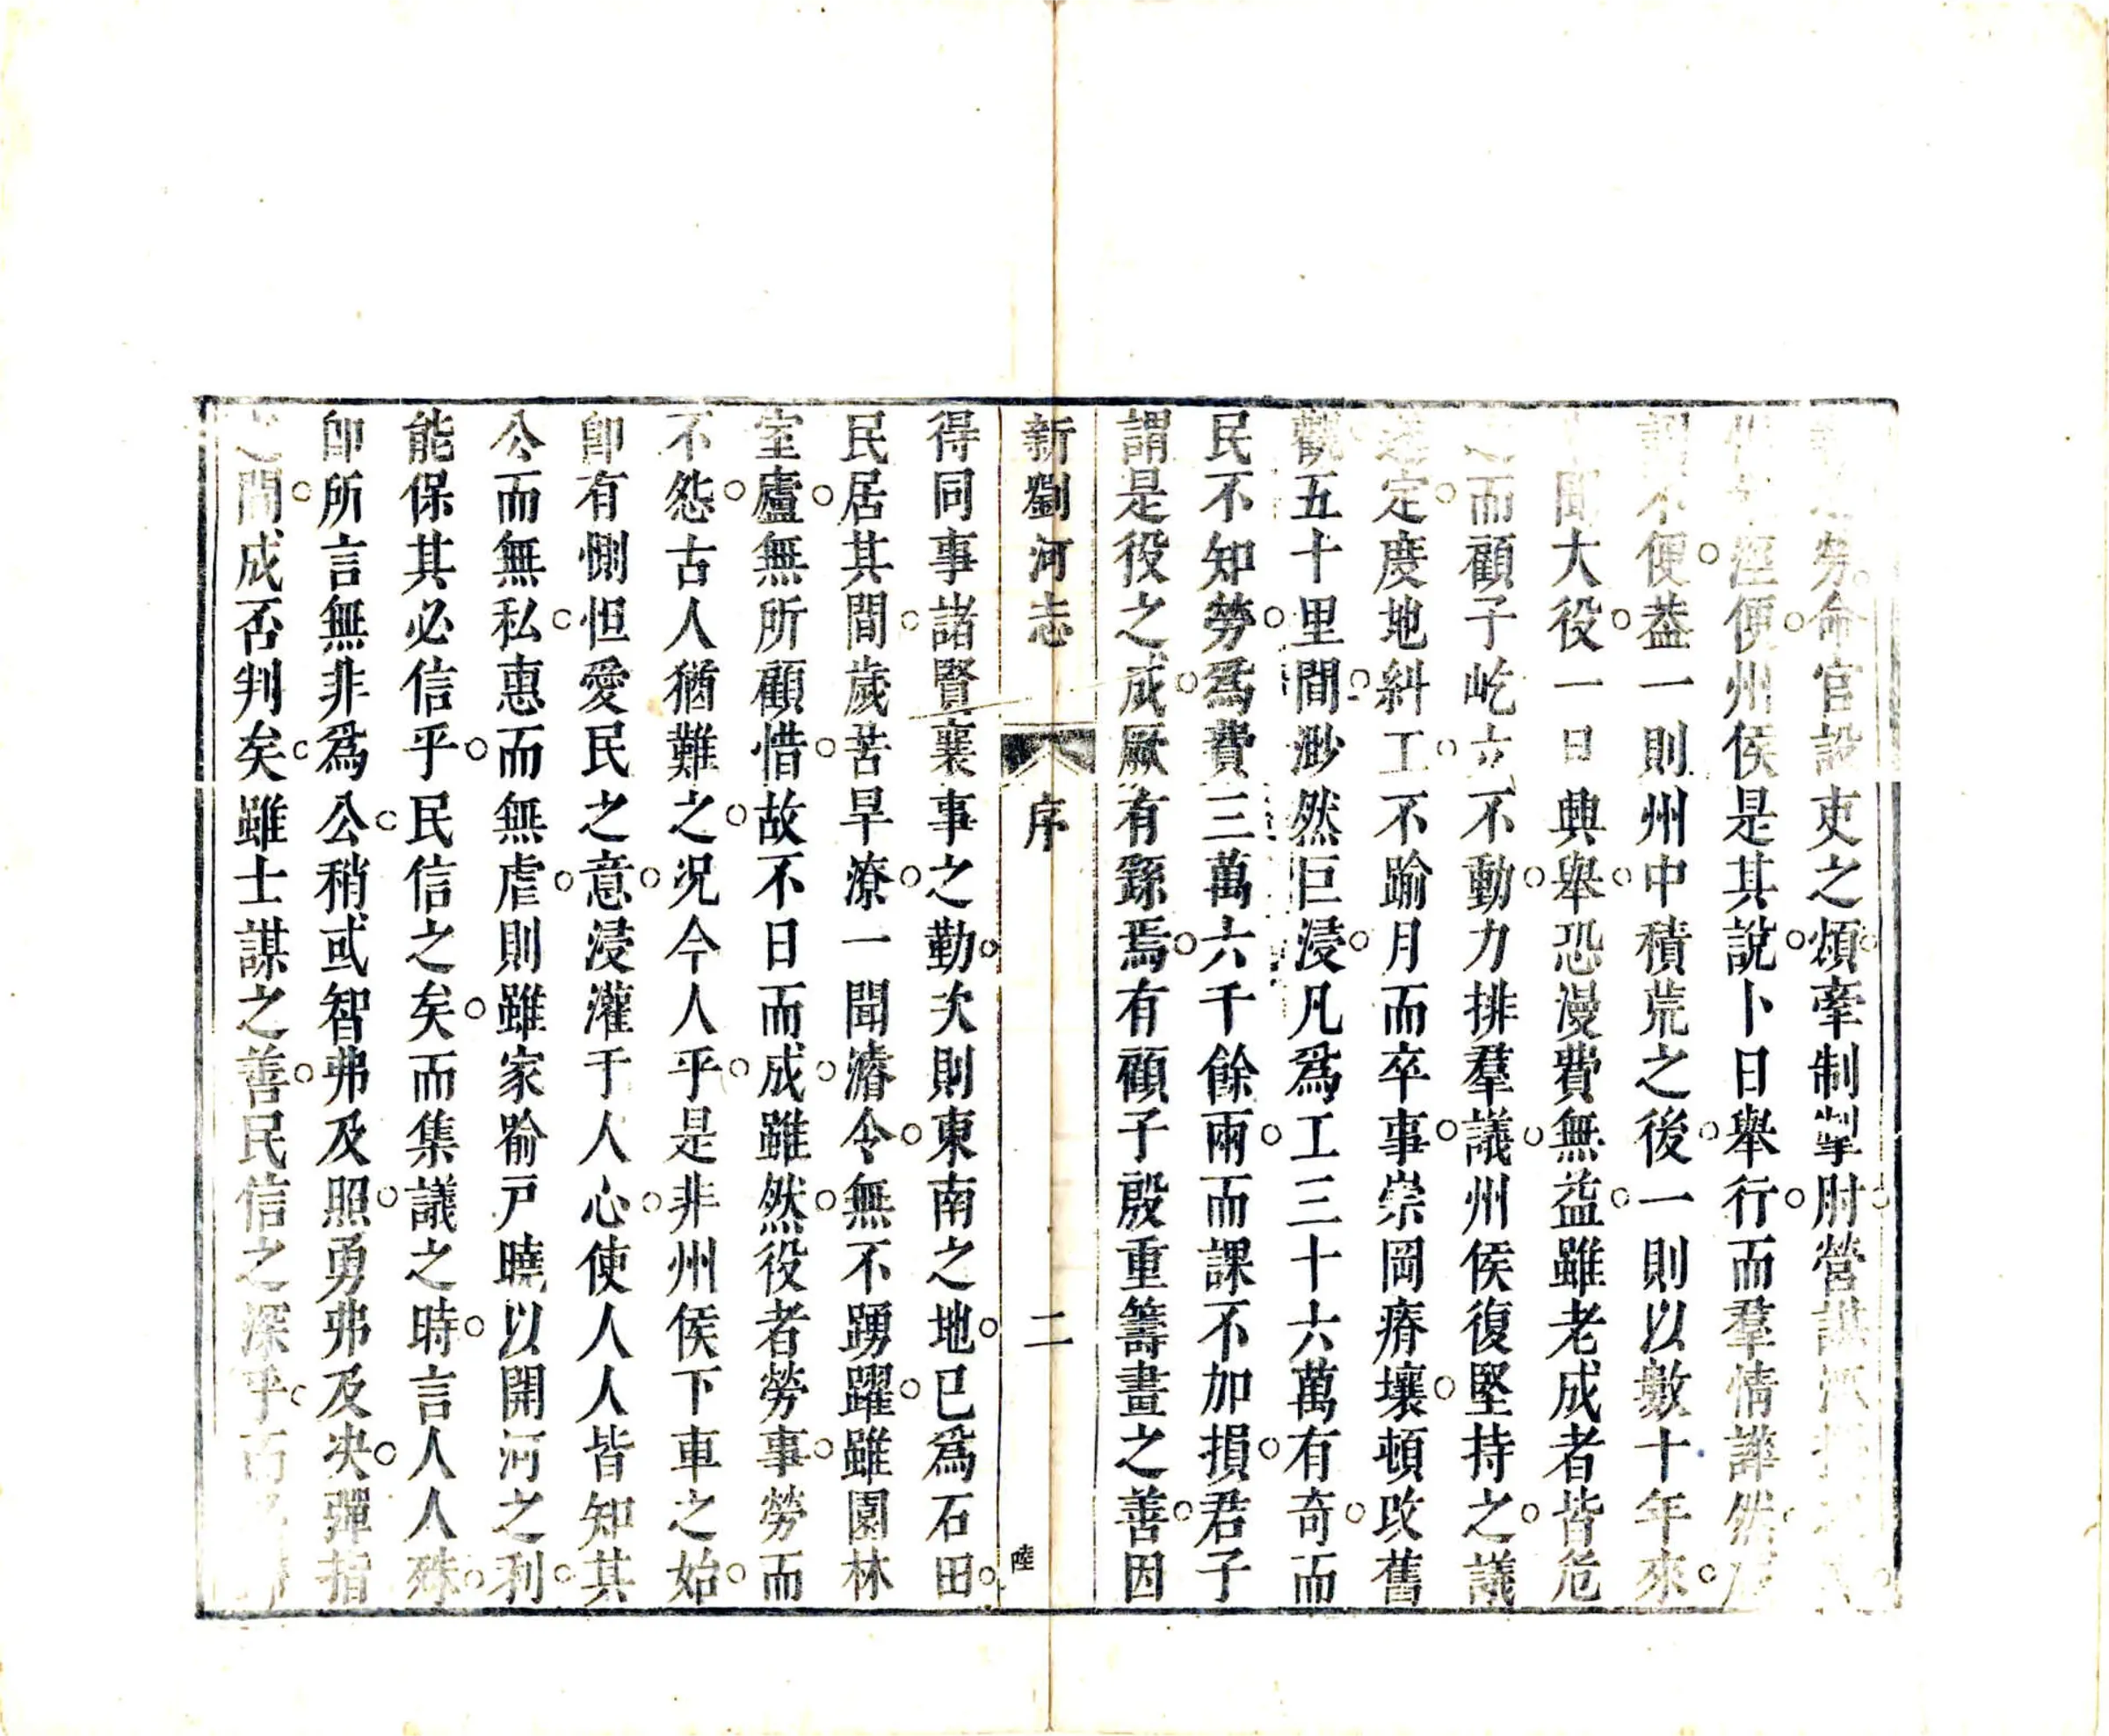 勞命官設吏之煩牽制掣肘營謀
涇便州侯是其說卜日舉行而羣情譁然
不便葢一則州中積荒之後一則以數十年來
聞大役一日興舉恐漫費無益雖老成者皆危
之而顧子屹立不動力排羣議州侯復堅持之議
遂定度地糾工不踰月而卒事崇岡瘠壤頓改舊
觀五十里間渺然巨浸凡爲工三十六萬有奇而
民不知勞爲費三萬六千餘兩而課不加損君子
謂是役之成厥有繇焉有顧子殷重籌畫之善因
新劉河志
序
二
陸
得同事諸賢襄事之勤次則東南之地已爲石田
民居其間歲苦旱潦一聞濬令無不踴躍雖園林
室廬無所顧惜故不日而成雖然役者勞事勞而
不怨古人猶難之况今人乎是非州侯下車之始
卽有惻怛愛民之意浸灌于人心使人人皆知其
公而無私惠而無虐則雖家喻戶曉以開河之利
能保其必信乎民信之矣而集議之時言人人殊
卽所言無非爲公稍或智弗及照勇弗及决彈指
之間成否判矣雖士謀之善民信之深乎而